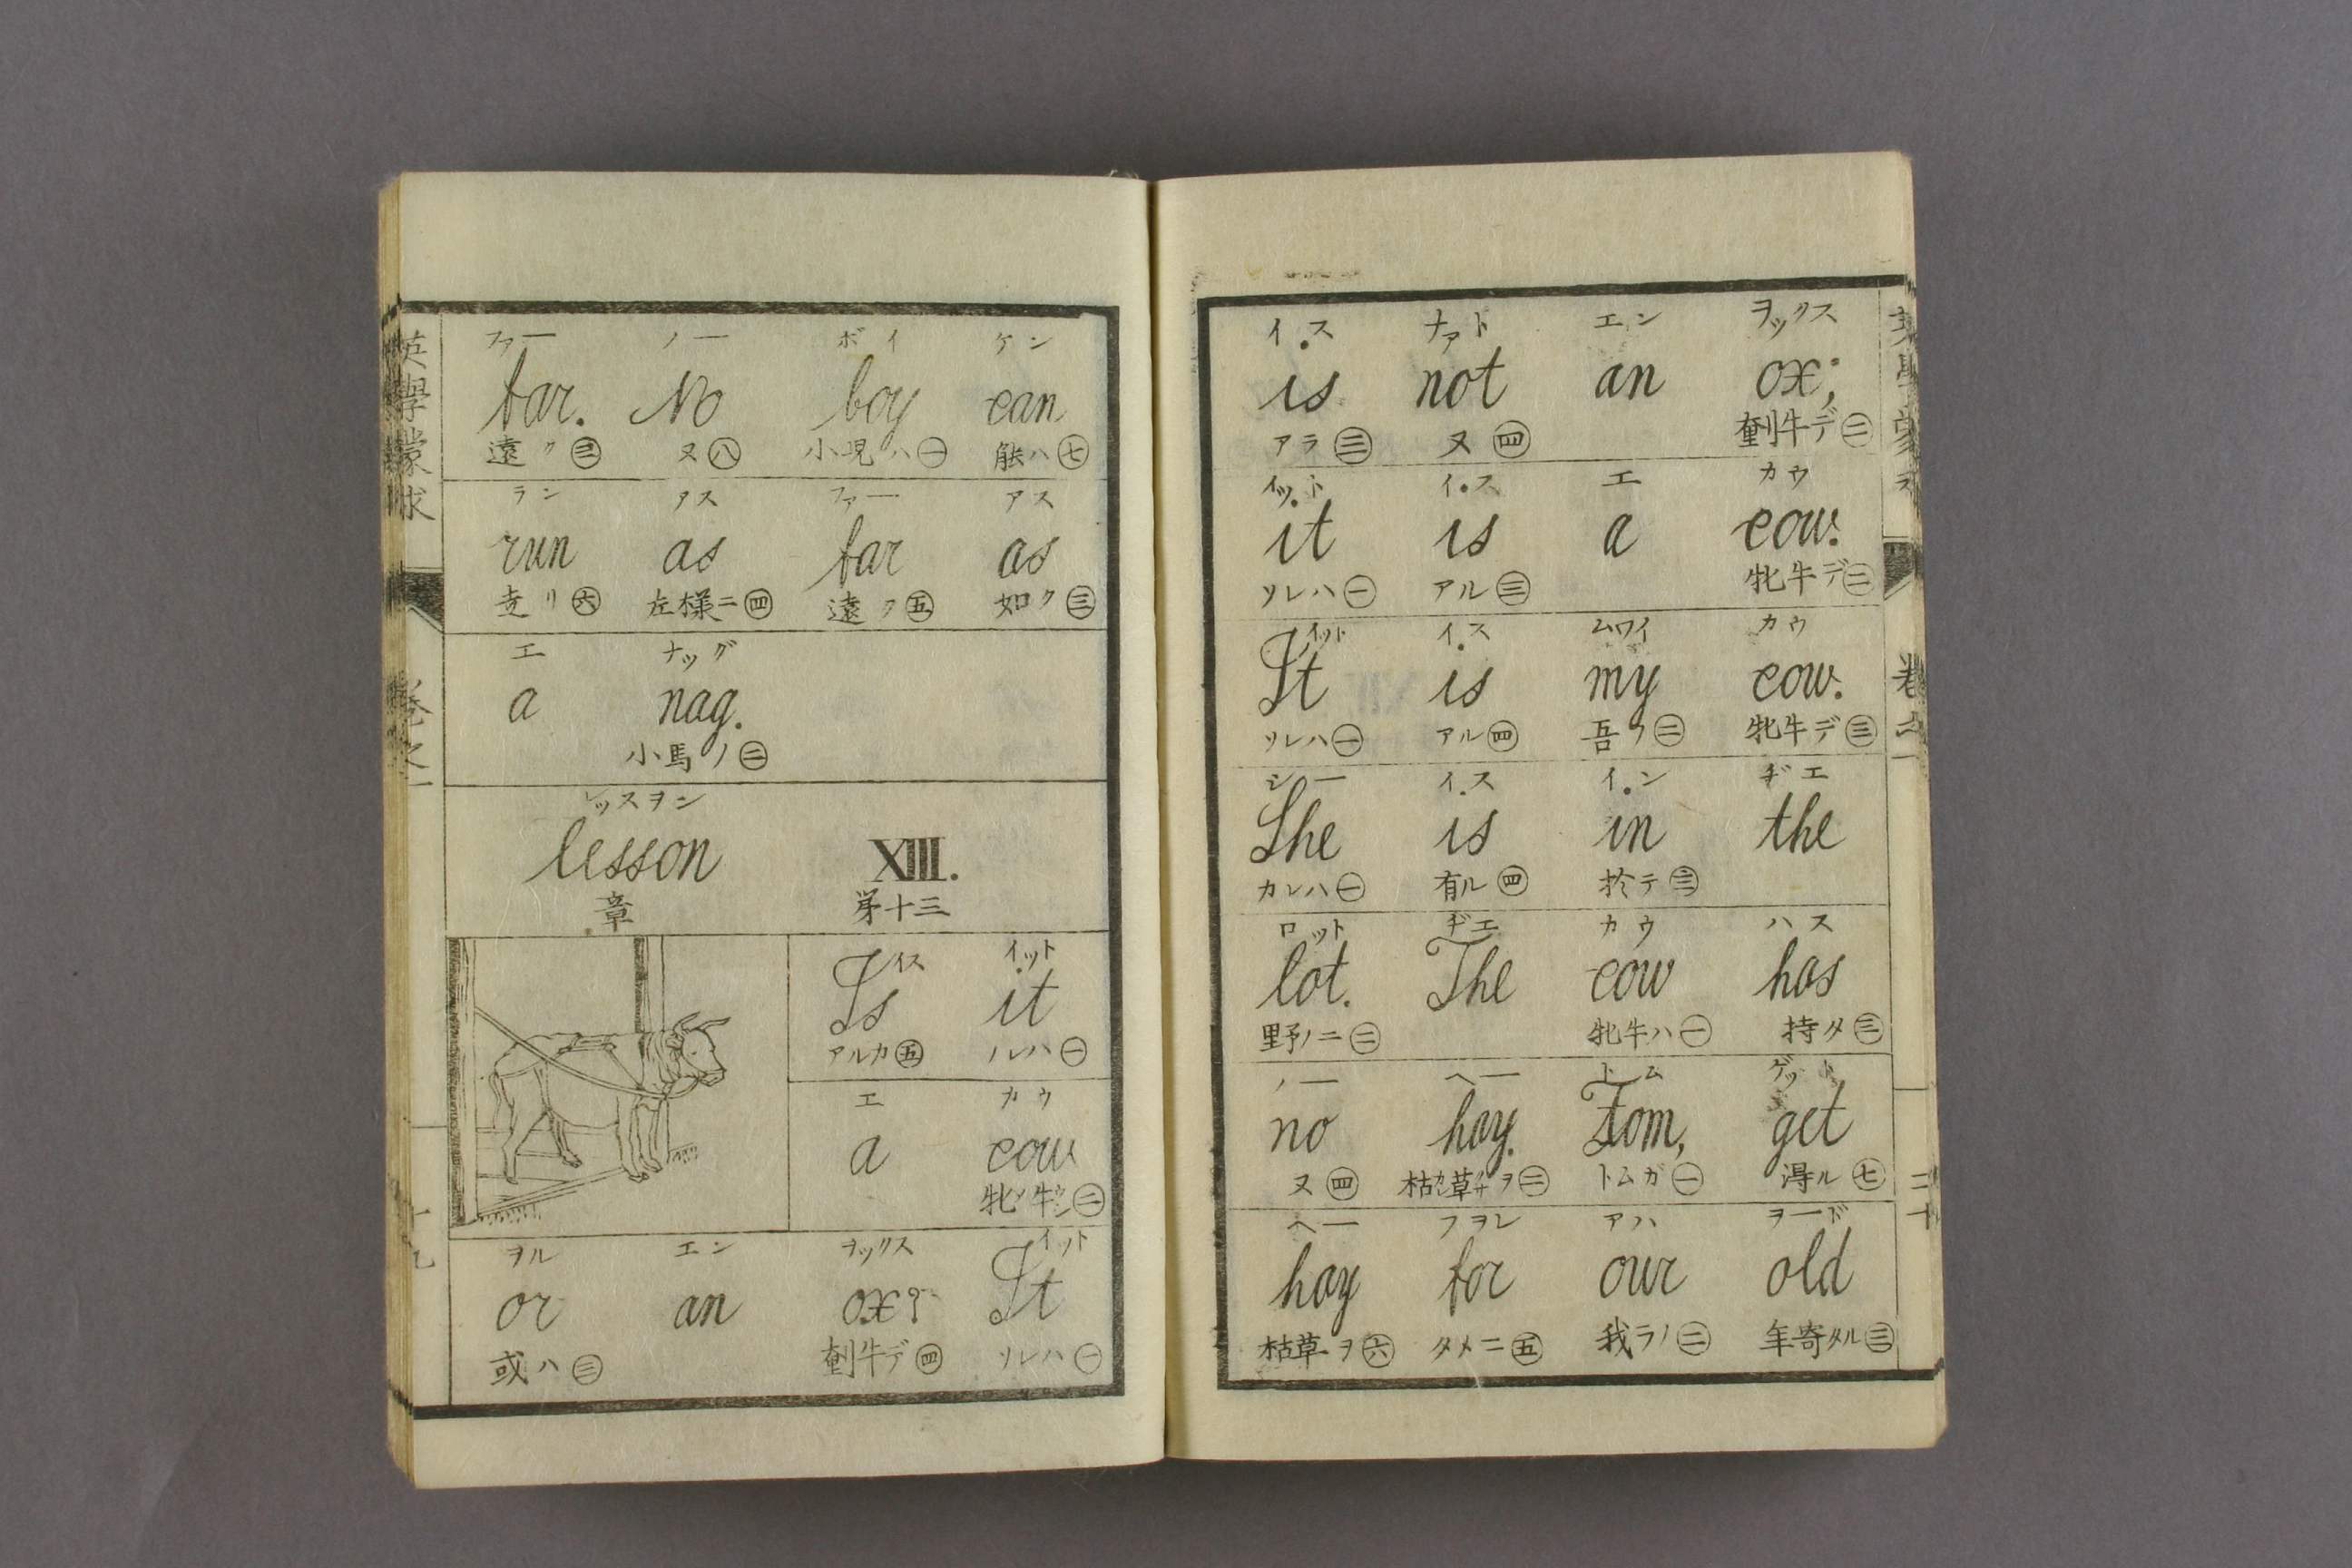 英學蒙求
巻之一
十九
ファー ノー ボイ ケン
far. No boy can
遠ク㊂ ヌ㊇ 小児ハ㊀ 能ハ㊆
ラン アス ファー アス
run as far as
走リ㊅ 左様ニ㊃ 遠ク㊄ 如ク㊂
エ ナッグ
a nag.
小馬ノ㊁
レッスヲン
lesson XIII.
章 第十三
イス イット
Is it
アルカ㊄ ソレハ㊀
エ カウ
a cow
牝牛
ヲル エン ヲックス イット
or an ox? It
或ハ㊂ 牛デ㊃ ソレハ㊀
イス ナァト エン ヲックス
is not an ox;
アラ㊂ ヌ㊃ 牛デ㊁
イット イス エ カウ
it is a cow.
ソレハ㊀ アル㊂ 牝牛デ㊁
イット イス ムワイ カウ
It is my cow.
ソレハ㊀ アル㊃ 吾ノ㊁ 牝牛デ㊂
シー イス イン ヂエ
She is in the
カレハ㊀ 有ル㊃ 於テ㊂
ロット ヂエ カウ ハス
lot. The cow has
野ノニ㊁ 牝牛ハ㊀ 持タ㊂
ノー ヘー トム ゲット
no hay. Tom, get
ヌ㊃ 枯草ヲ㊁ トムガ㊀ 得ル㊆
ヘー フヲレ アハ ヲード
hay for our old
枯草ヲ㊅ タメニ㊄ 我ラノ㊁ 年寄タル㊂
巻之一
二十